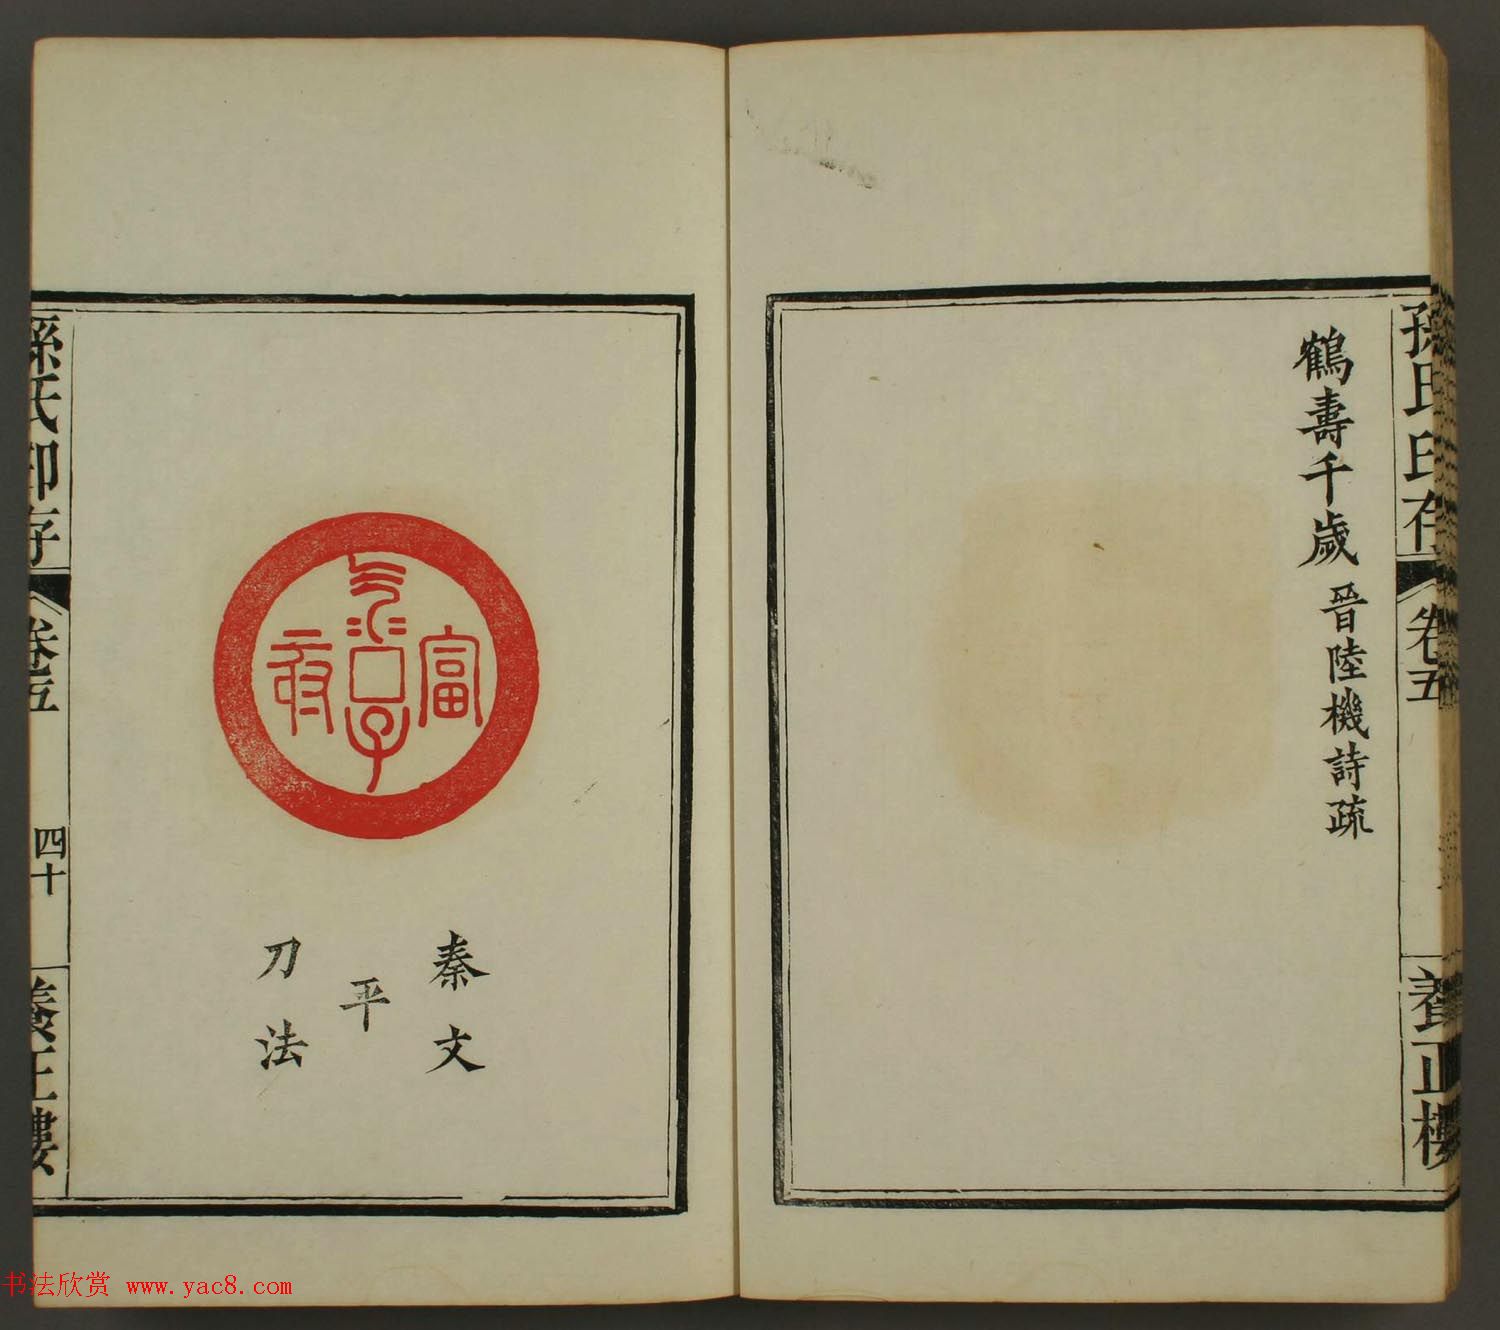 孫氏印存
卷五
養正樓
鶴壽千歲 晉陸機詩疏
富
子
孫氏印存
卷五
四十
養正樓
秦文
平
刀法
书法欣赏 www.yac8.com